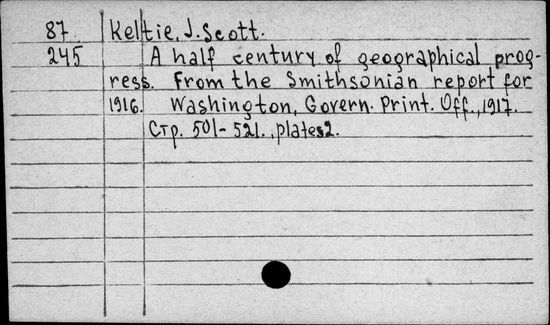 87 Keltie, J. Scott.
245 A half century of geographical prog-
ress. From the Smithsonian report for
1916. Washington, Govern. Print. Off., 1917.
Стр. 501-521., plates2.